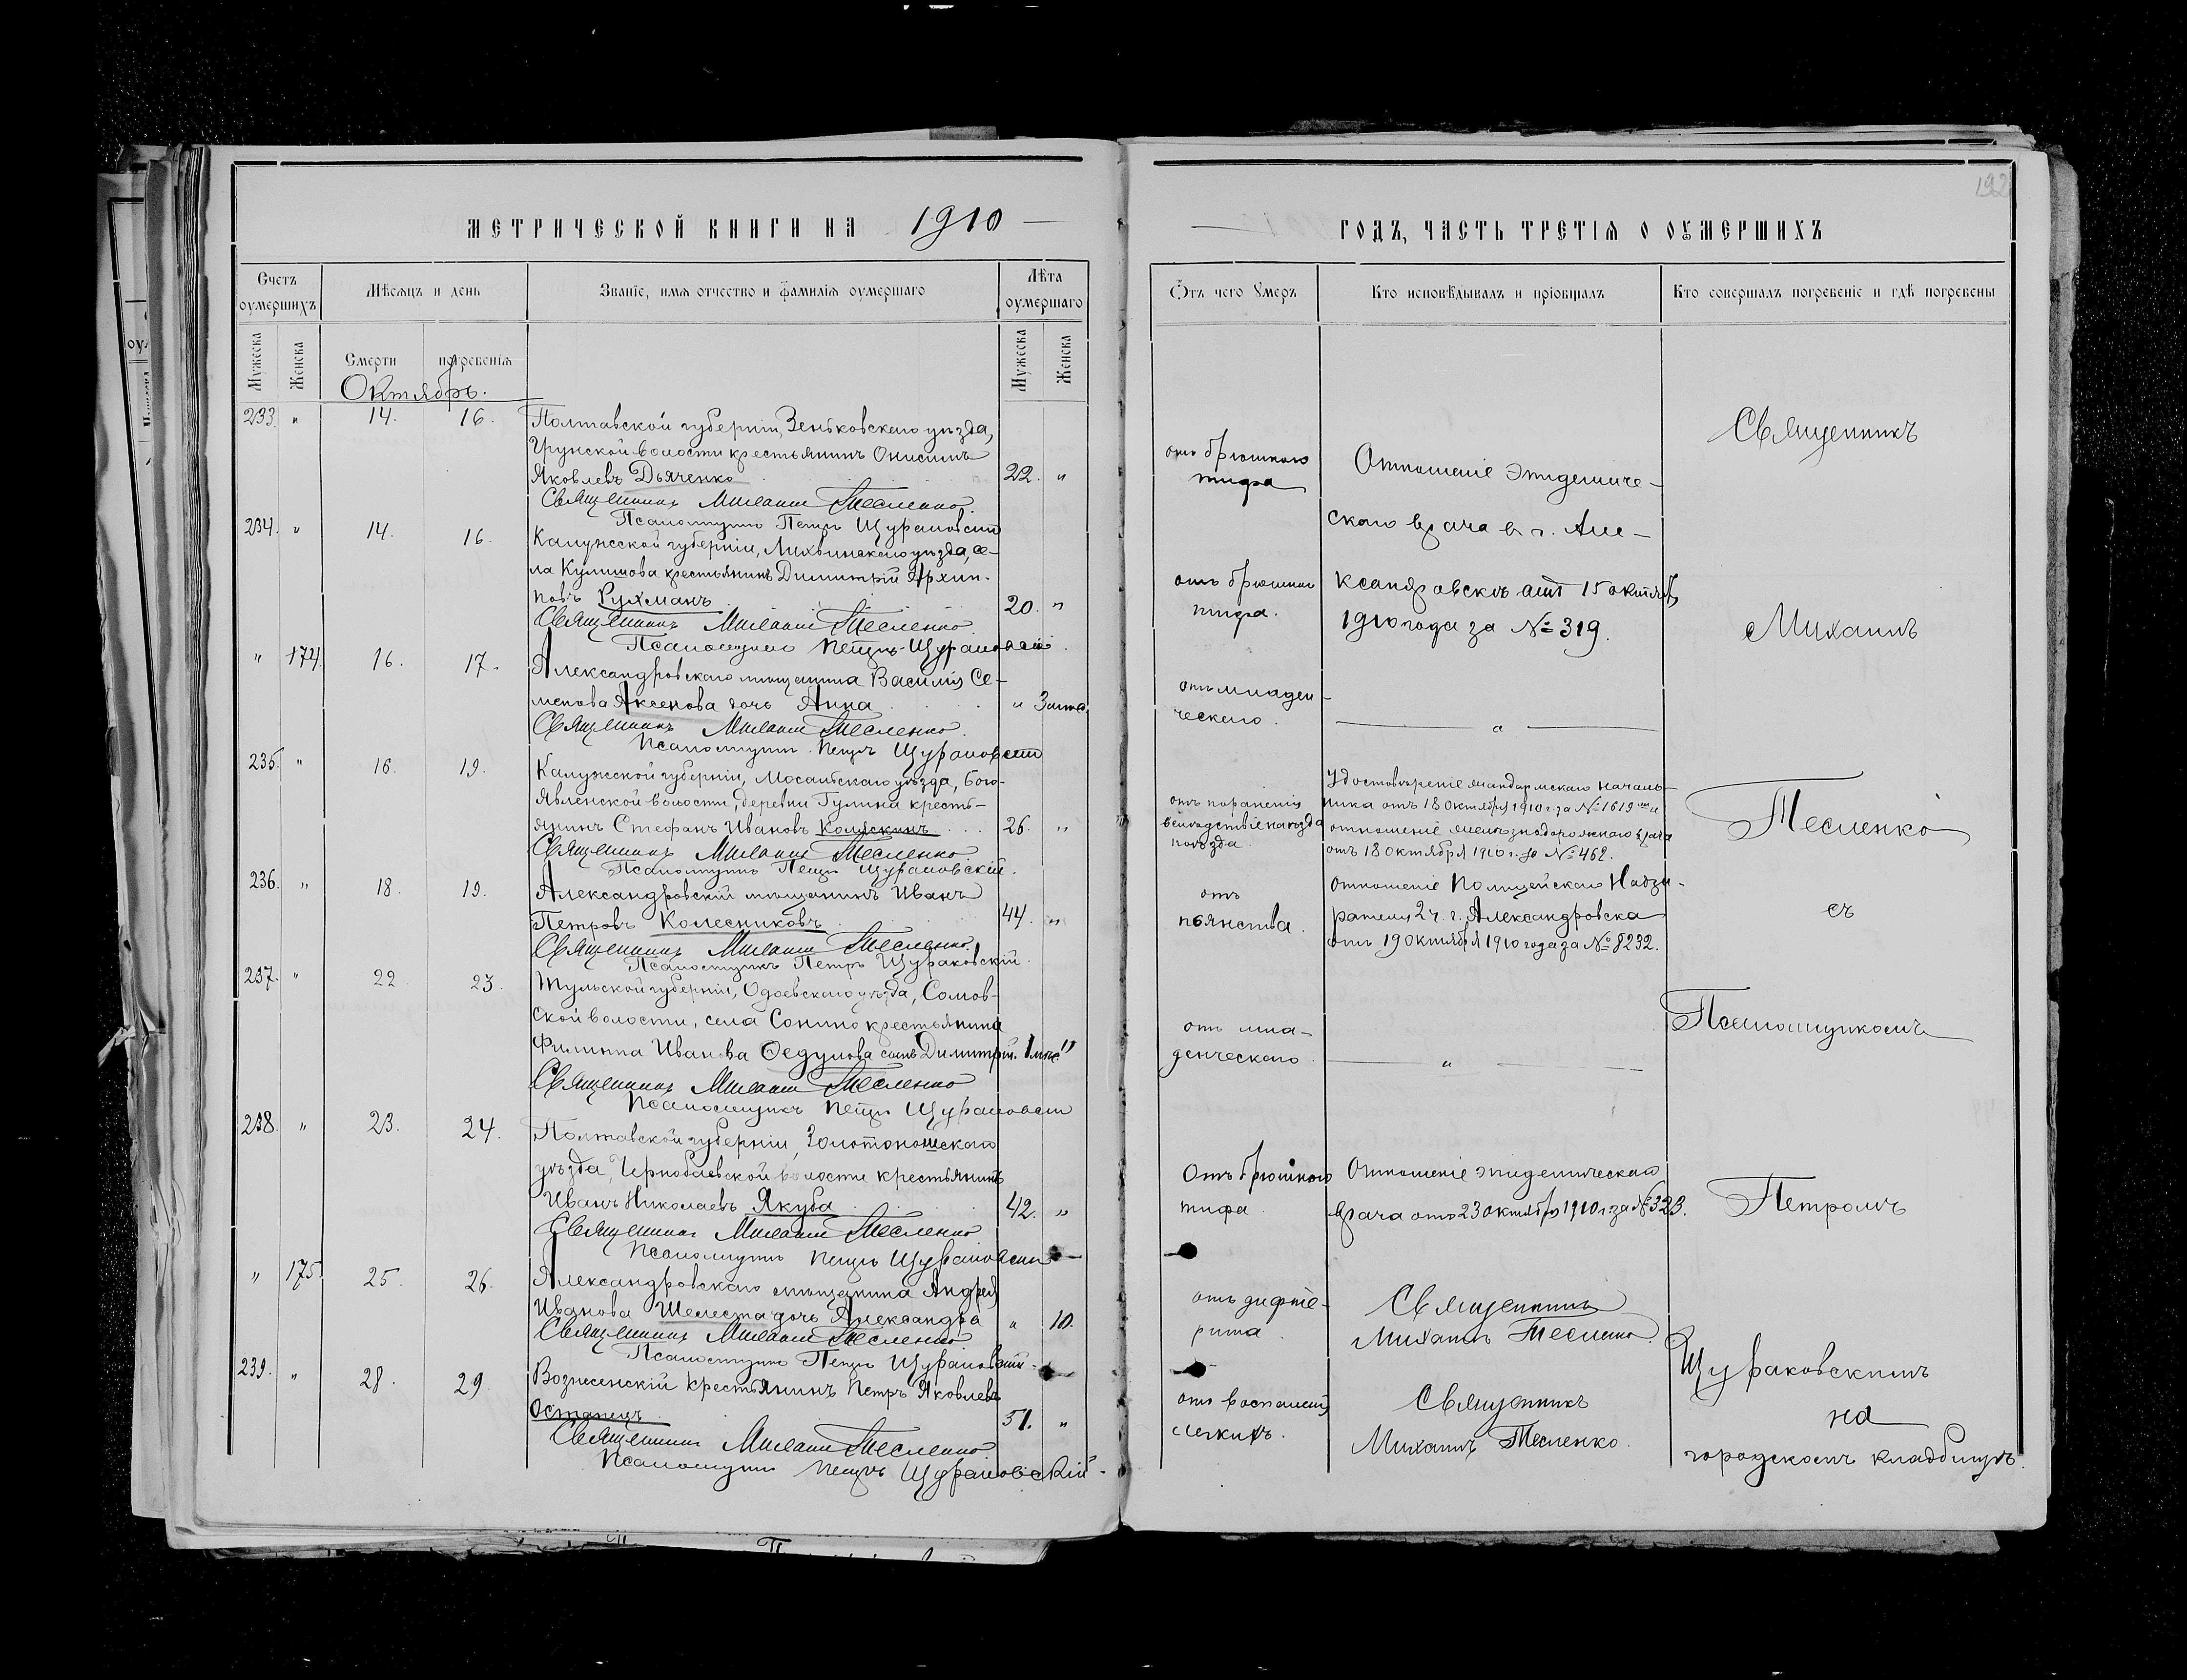 МЕТРИЧЕСКОЙ КНИГИ НА 1910
Счетъ оумершихъ
Мѣсяцъ и день
Званіе, имя отчество и фамилія оумершаго
Лѣта оумершаго
Мужеска
Женска
Смерти
погребенія
Мужеска
Женска
Октябрь.
233. " 14. 16.
Полтавской губерніи, Зеньковскаго уѣзда,
Грунской волости крестьянинъ Онисимъ
Яковлевъ Дьяченко 22. "
Священникъ Михаилъ Тесленко.
Псаломщикъ Петръ Щураковскій
234. " 14. 16.
Калужсской губерніи, Лихвинскаго уѣзда, се-
ла Кулешова крестьянинъ Димитрій Архип-
повъ Рухманъ 20. "
Священникъ Михаилъ Тесленко
Псаломщикъ Петръ Щураковскій.
" 174. 16. 17.
Александровскаго мѣщанина Василія Се-
менова Аксенова дочь Анна " 3 мѣс.
Священникъ Михаилъ Тесленко.
Псаломщикъ Петръ Щураковскій
235. " 16. 19.
Калужской губерніи, Мосальскаго уѣзда, Бого-
явленской волости, деревни Гулина кресть-
янинъ Стефанъ Ивановъ Коляскинъ 26. "
Священникъ Михаилъ Тесленко
Псаломщикъ Петръ Щураковскій.
236. " 18. 19.
Александровскій мѣщанинъ Иванъ
Петровъ Колесниковъ 44. "
Священникъ Михаилъ Тесленко.
Псаломщикъ Петръ Щураковскій.
237. " 22. 23.
Тульской губерніи, Одоевскаго уѣзда, Сомов-
ской волости, села Сонино крестьянина
Филиппа Иванова Федулова сынъ Димитрій. 1 мѣс. "
Священникъ Михаилъ Тесленко
Псаломщикъ Петръ Щураковскій
238. " 23. 24.
Полтавской губерніи, Золотоношскаго
уѣзда, Чернобаевской волости крестьянинъ
Иванъ Николаевъ Якуба 42. "
Священникъ Михаилъ Тесленко
Псаломщикъ Петръ Щураковскій
" 175. 25. 26.
Александровскаго мѣщанина Андрея
Иванова Шелеста дочь Александра " 10.
Священникъ Михаилъ Тесленко
Псаломщикъ Петръ Щураковскій.
239. " 28. 29.
Вознесенскій крестьянинъ Петръ Яковлевъ
Остапецъ 51. "
Священникъ Михаилъ Тесленко
Псаломщикъ Петръ Щураковскій.
192
ГОДЪ, ЧАСТЬ ТРЕТІЯ О ОУМЕРШИХЪ
Ѿтъ чего умеръ
Кто исповѣдывалъ и пріобщалъ
Кто совершалъ погребеніе и гдѣ погребены
отъ брюшного
тифа
Отношеніе эпидемиче-
скаго врача въ г. Але-
отъ брюшного
тифа.
ксандровскѣ отъ 15 октября
1910 года за № 319.
отъ младен-
ческаго.
"
отъ пораненія
вслѣдствіе наѣзда
поѣзда
Удостовѣреніе жандармскаго началь-
ника отъ 18 октября 1910 г. за № 1619 и
отношеніе желѣзнодорожнаго врача
отъ 18 октября 1910 г. за № 462.
отъ
пьянства.
Отношеніе Полицейскаго Надзи-
рателя 2 ч. г. Александровска
отъ 19 октября 1910 года за № 8232.
отъ мла-
денческаго
"
Отъ брюшного
тифа
Отношеніе эпидемическаго
врача отъ 23 октября 1910 г. за № 323.
отъ дифте-
рита.
Священникъ
Михаилъ Тесленко.
отъ воспаленія
легкихъ.
Священникъ
Михаилъ Тесленко.
Священникъ
Михаилъ
Тесленко
съ
Псаломщикомъ
Петромъ
Щураковскимъ
на
городскомъ кладбищѣ.